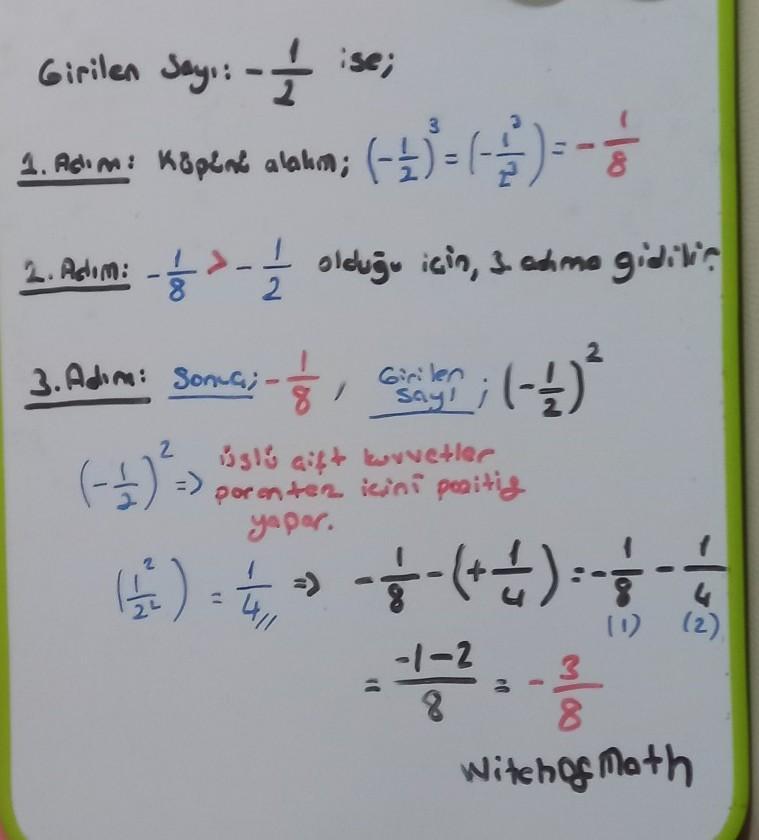 Girilen Sayı: -1/2 ise;
1. Adım: Küpünü alalım; (-1/2)^3 = (-1^3/2^3) = -1/8
2. Adım: -1/8 > -1/2 olduğu için, 3. adıma gidilir
3. Adım: Sonuç; -1/8, Girilen Sayı; (-1/2)^2
(-1/2)^2 => üslü çift kuvvetler
parantez içini pozitif
yapar.
(1^2/2^2) = 1/4 // => -1/8 - (+1/4) = -1/8 - 1/4
(1) (2)
= -1-2/8 = -3/8
WitchofMath